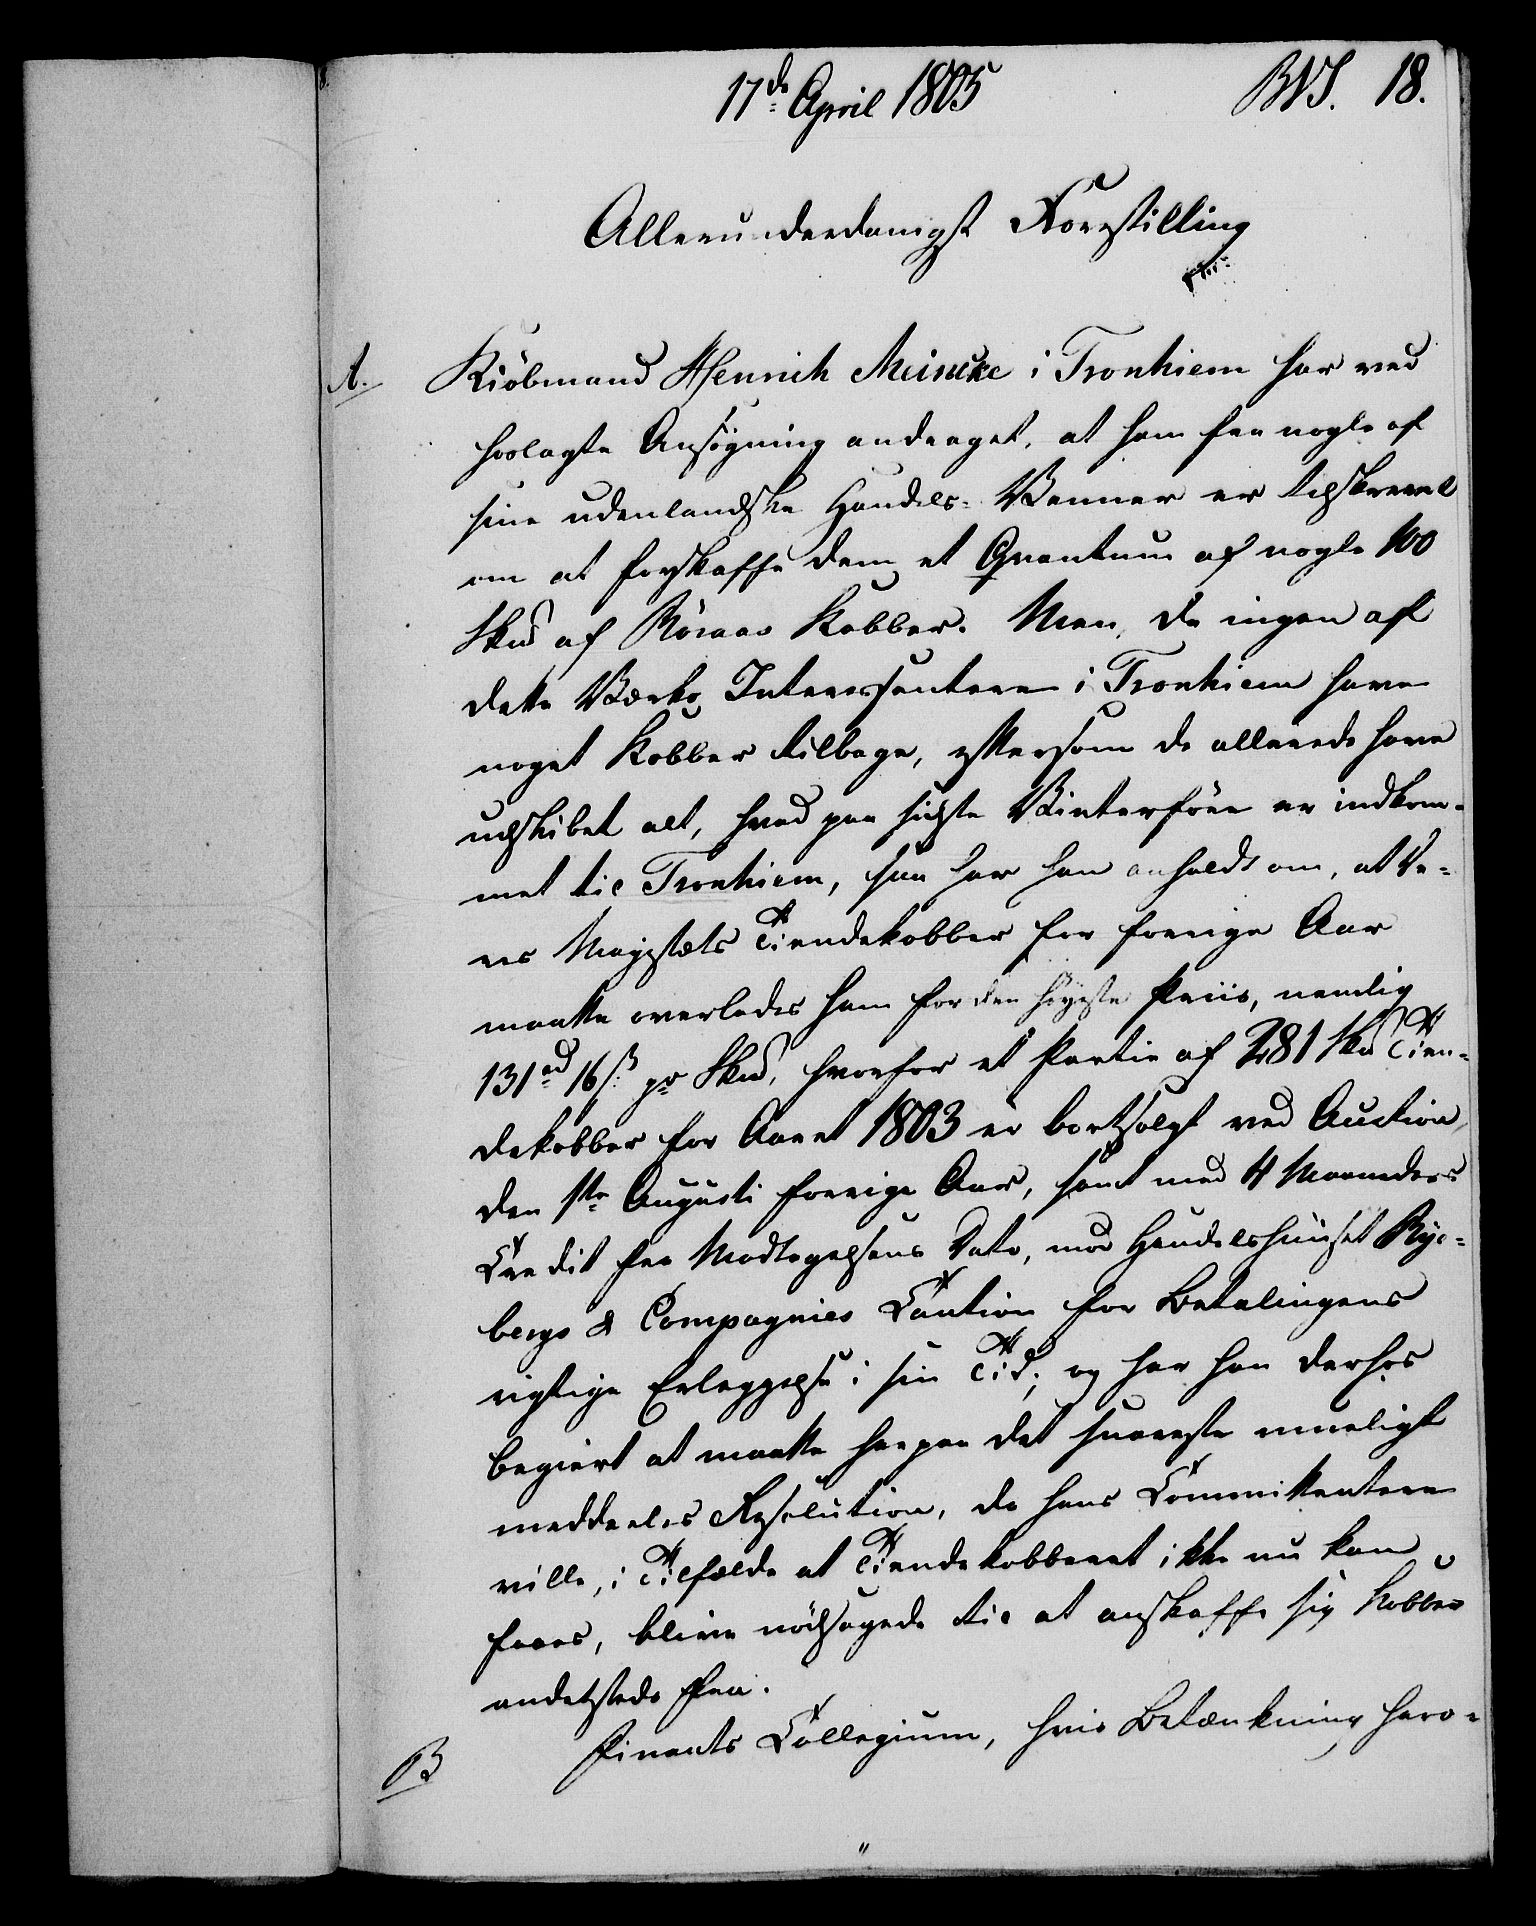 17de April 1805 BVS. 18.
Allerunderdanigst Forestilling
A. Kiöbmand Henrich Meincke i Tronhiem har ved
hoslagte Ansögning andraget, at ham fra nogle af
sine udenlandske Handels-Venner er tilskrevet
om at forskaffe dem et Qvantum af nogle 100
Sk℔ af Röraas Kobber. Men, da ingen af
dette Værks Interessentere i Tronhiem have
noget Kobber tilbage, eftersom de allerede have
udskibet alt, hvad paa sidste Vinterföre er indkom-
met til Tronhiem, saa har han anholdt om, at De-
res Majestæts Tiendekobber for forrige Aar
maatte overlades ham for den höyeste Priis, nemlig
131rd 16ß pr Sk℔, hvorfor et Partie af 281 Sk℔ Tien-
dekobber for Aaret 1803 er bortsolgt ved Auction
den 1ste Augusti forrige Aar, samt med 4 Maaneders
Credit fra Modtagelsens Dato, mod Handelshuuset Ryc-
bergs & Compagnies Caution for Betalingens
rigtige Erlæggelse i sin Tid; og har han derhos
begiert at maatte herpaa det snareste mueligt
meddeeles Resolution, da hans Committentere
ville, i Tilfælde at Tiendekobberet ikke nu kan
faaes, blive nödsagede til at anskaffe sig Kobber
andetsteds fra.
B Finants Collegium, hvis Betænkning hero-